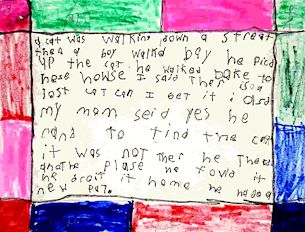 a cat was walking down a street
then a boy walked bay he picd
up the cat. he walked bake to
hese howse I said Ther is a
lost cat can I get it i clsd
my mom seid yes he
rand to find tine cat
it was not ther he Theed
anothe plase he fowd it
he droit it home he had a
new pet.